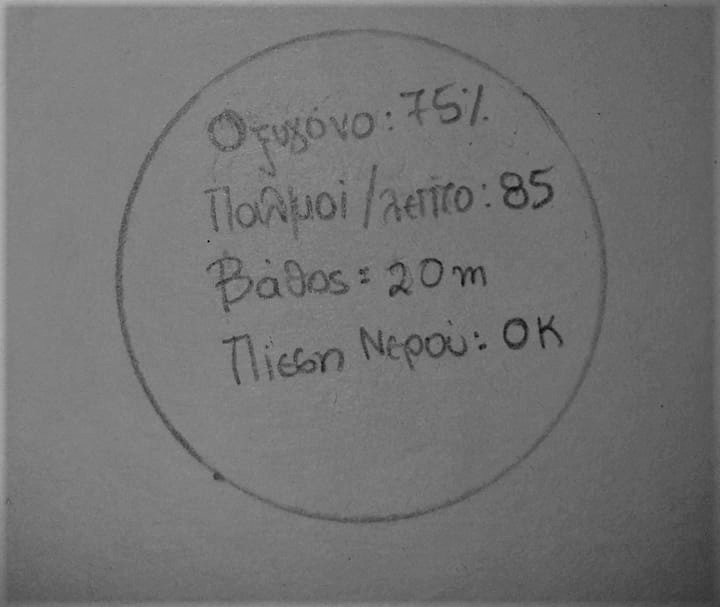 Οξυγόνο: 75%
Παλμοί/λεπτο: 85
Βάθος: 20m
Πίεση Νερού: OK